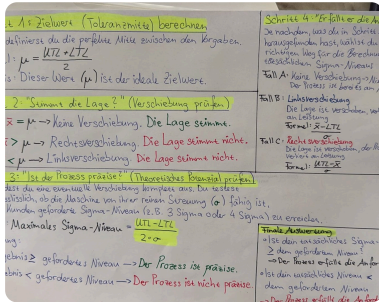 tt 1 = Zielwert (Toleranzmitte) berechnen
definierst du die perfekte Mitte zwischen den Vorgaben.
l: μ = UTL + LTL
2
: Dieser Wert (μ) ist der ideale Zielwert.
2: "Stimmt die Lage?" (Verschiebung prüfen)
x̄ = μ → Keine Verschiebung. Die Lage stimmt.
> μ → Rechtsverschiebung. Die Lage stimmt nicht.
< μ → Linksverschiebung. Die Lage stimmt nicht.
3: "Ist der Prozess präzise?" (Theoretisches Potenzial prüfen)
dest du eine eventuelle Verschiebung komplett aus. Du testest
, ob die Maschine von ihrer reinen Streuung (σ) fähig ist,
Kunden gefordertes Sigma-Niveau (z.B. 3 Sigma oder 4 Sigma) zu erreichen.
Maximales Sigma-Niveau = UTL-LTL
2·σ
ng:
ebnis ≥ gefordertes Niveau → Der Prozess ist präzise.
ebnis < gefordertes Niveau → Der Prozess ist nicht präzise.
Schritt 4: "Erfüllt er die Anf
Je nachdem, was du in Schrit
herausgefunden hast, wählst du
richtigen Weg für die Berechnu
tatsächlichen Sigma-Niveaus
Fall A: Keine Verschiebung
Der Prozess ist bereits an
Fall B: Linksverschiebung
Die Lage ist verschoben, de
an Leistung
Formel: x̄-LTL
σ
Fall C: Rechtsverschiebung
Die Lage ist verschoben, der P
verliert an Leistung
Formel: UTL-x̄
σ
Finale Auswertung
Ist dein tatsächliches Sigma-
≥ dem geforderten Niveau
→ Der Prozess erfüllt die Anfor
Ist dein tatsächliches Niveau <
dem geforderten Niveau
→ Der Prozess erfüllt die Anfo